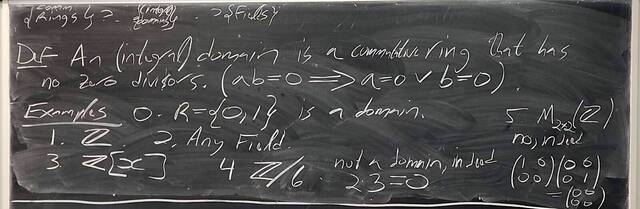 {comm Rings} ⊃ {integral domains} ⊃ {Fields}
Def An (integral) domain is a commutative ring that has
no zero divisors. (ab=0 ⟹ a=0 ∨ b=0).
Examples 0. R={0,1} is a domain.
1. ℤ 2. Any Field.
3 ℤ[x] 4 ℤ/6 not a domain, indeed
2·3=0
5 M₂ₓ₂(ℤ)
no, indeed
(1 0 / 0 0)(0 0 / 0 1)
=(0 0 / 0 0)